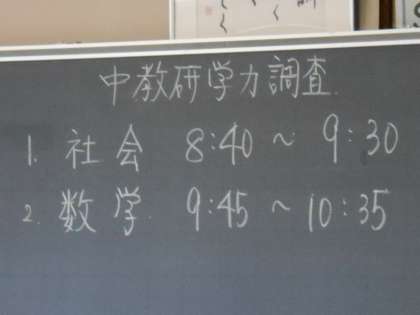 中教研学力調査.
1. 社会 8:40 ~ 9:30
2. 数学. 9:45 ~ 10:35